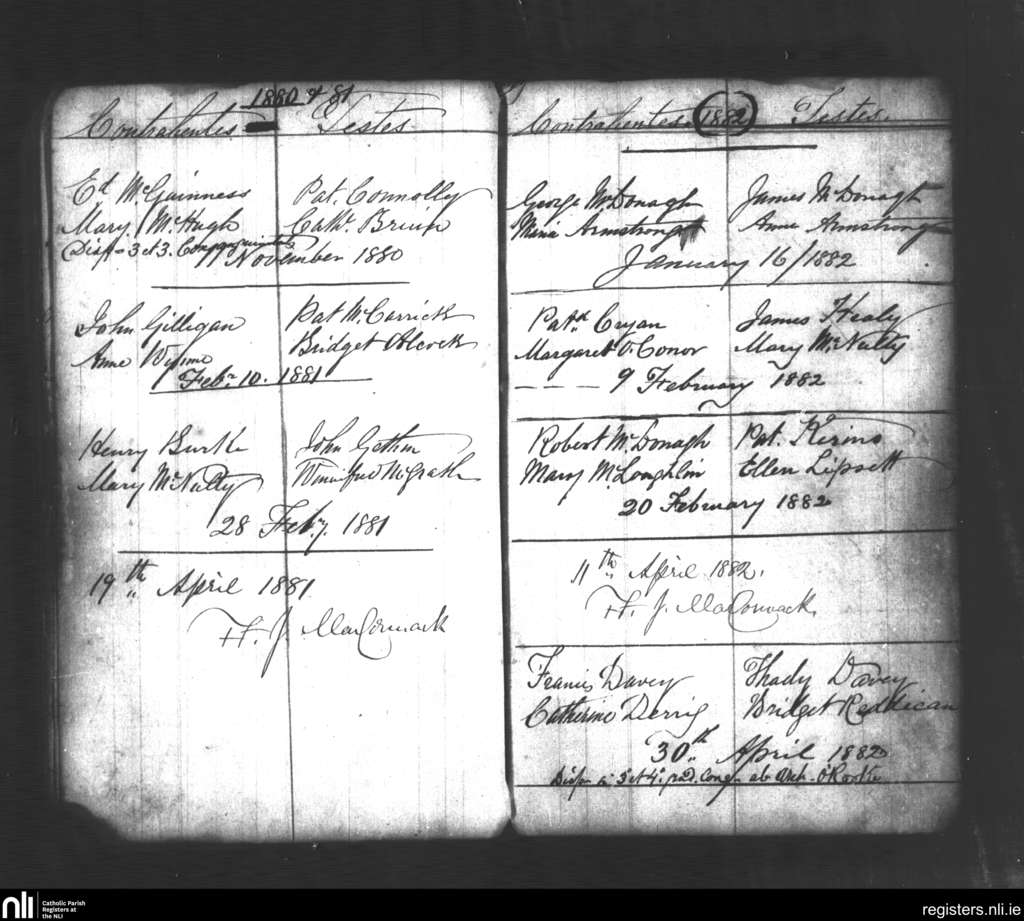 1880 & 81
Contrahentes Testes
Ed McGuinness Pat. Connolly
Mary McHugh Cath.
Disp - 3 et 3. Consanguinitatis
11 November 1880
John Gilligan Pat McCarrick
Anne Wynne Bridget Alcock
Feb. 10. 1881
Henry Burke John Gethin
Mary McNulty Winifred McGrath
28 Feb.y. 1881
19th April 1881.
F. J. MacCormack
Contrahentes 1882 Testes.
George McDonagh James McDonagh
Armstrong Anne Armstrong
January 16/1882
Patk Cryan James Healy
Margaret O'Conor Mary McNulty
9 February 1882
Robert McDonagh Pat. Kerins
Mary McLoughlin Ellen Lipsett
20 February 1882
11th April 1882.
F. J. MacCormack
Francis Davey Thady Davey
Catherine Derrig Bridget Reddican
30th April 1882
Disp. in 3 et 4 O'Rorke
nli
Catholic Parish
Registers at
the NLI
registers.nli.ie